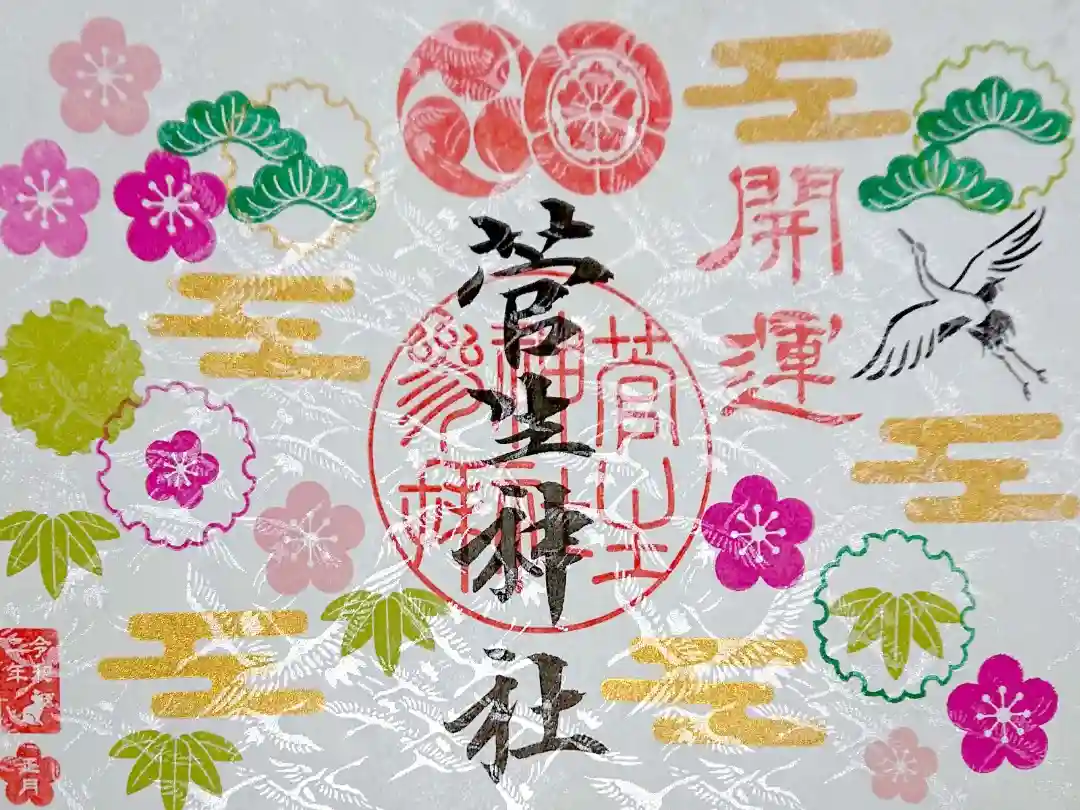 開運
菅生神社
菅生
神社
參拜
令和
年
正月